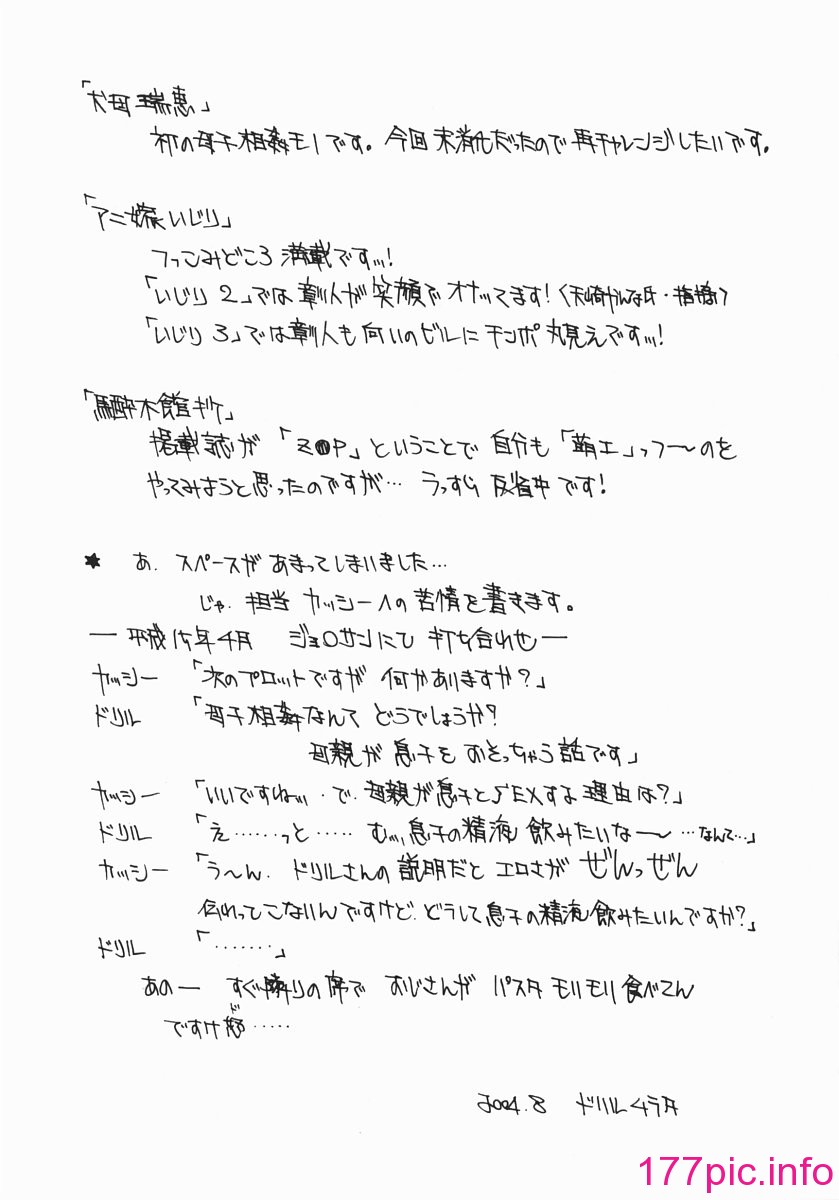 「犬母瑞恵」
初の母子相姦モノです。今回未消化だったので再チャレンジしたいです。
「アニ嫁いじり」
つっこみどころ満載ですッ!
「いじり2」では彰人が笑顔でオナってます!〈天崎かんな氏・指摘〉
「いじり3」では彰人も向いのビルにチンポ丸見えですッ!
「馬酔木館」
掲載誌が「Z●P」ということで自分も「萌エ」っつ〜のを
やってみようと思ったのですが… うっすら反省中です!
★ あ、スペースがあまってしまいました…
じゃ、担当カッシーへの苦情を書きます。
― 平成15年4月 ジョロサンにて 打ち合わせ ―
カッシー 「次のプロットですが 何かありますか?」
ドリル 「母子相姦なんて どうでしょうか?
母親が息子をおそっちゃう話です」
カッシー 「いいですねッ・で、母親が息子とSEXする理由は?」
ドリル 「え……っと…… むッ、息子の精液飲みたいな〜 …なんて…」
カッシー 「う〜ん、ドリルさんの説明だと エロさが ぜんっぜん
伝わってこないんですけど、どうして息子の精液飲みたいんですか?」
ドリル 「………」
あの― すぐ隣りの席で おじさんが パスタ モリモリ食べてん
ですけど……
2004.8 ドリルムラタ
177pic.info